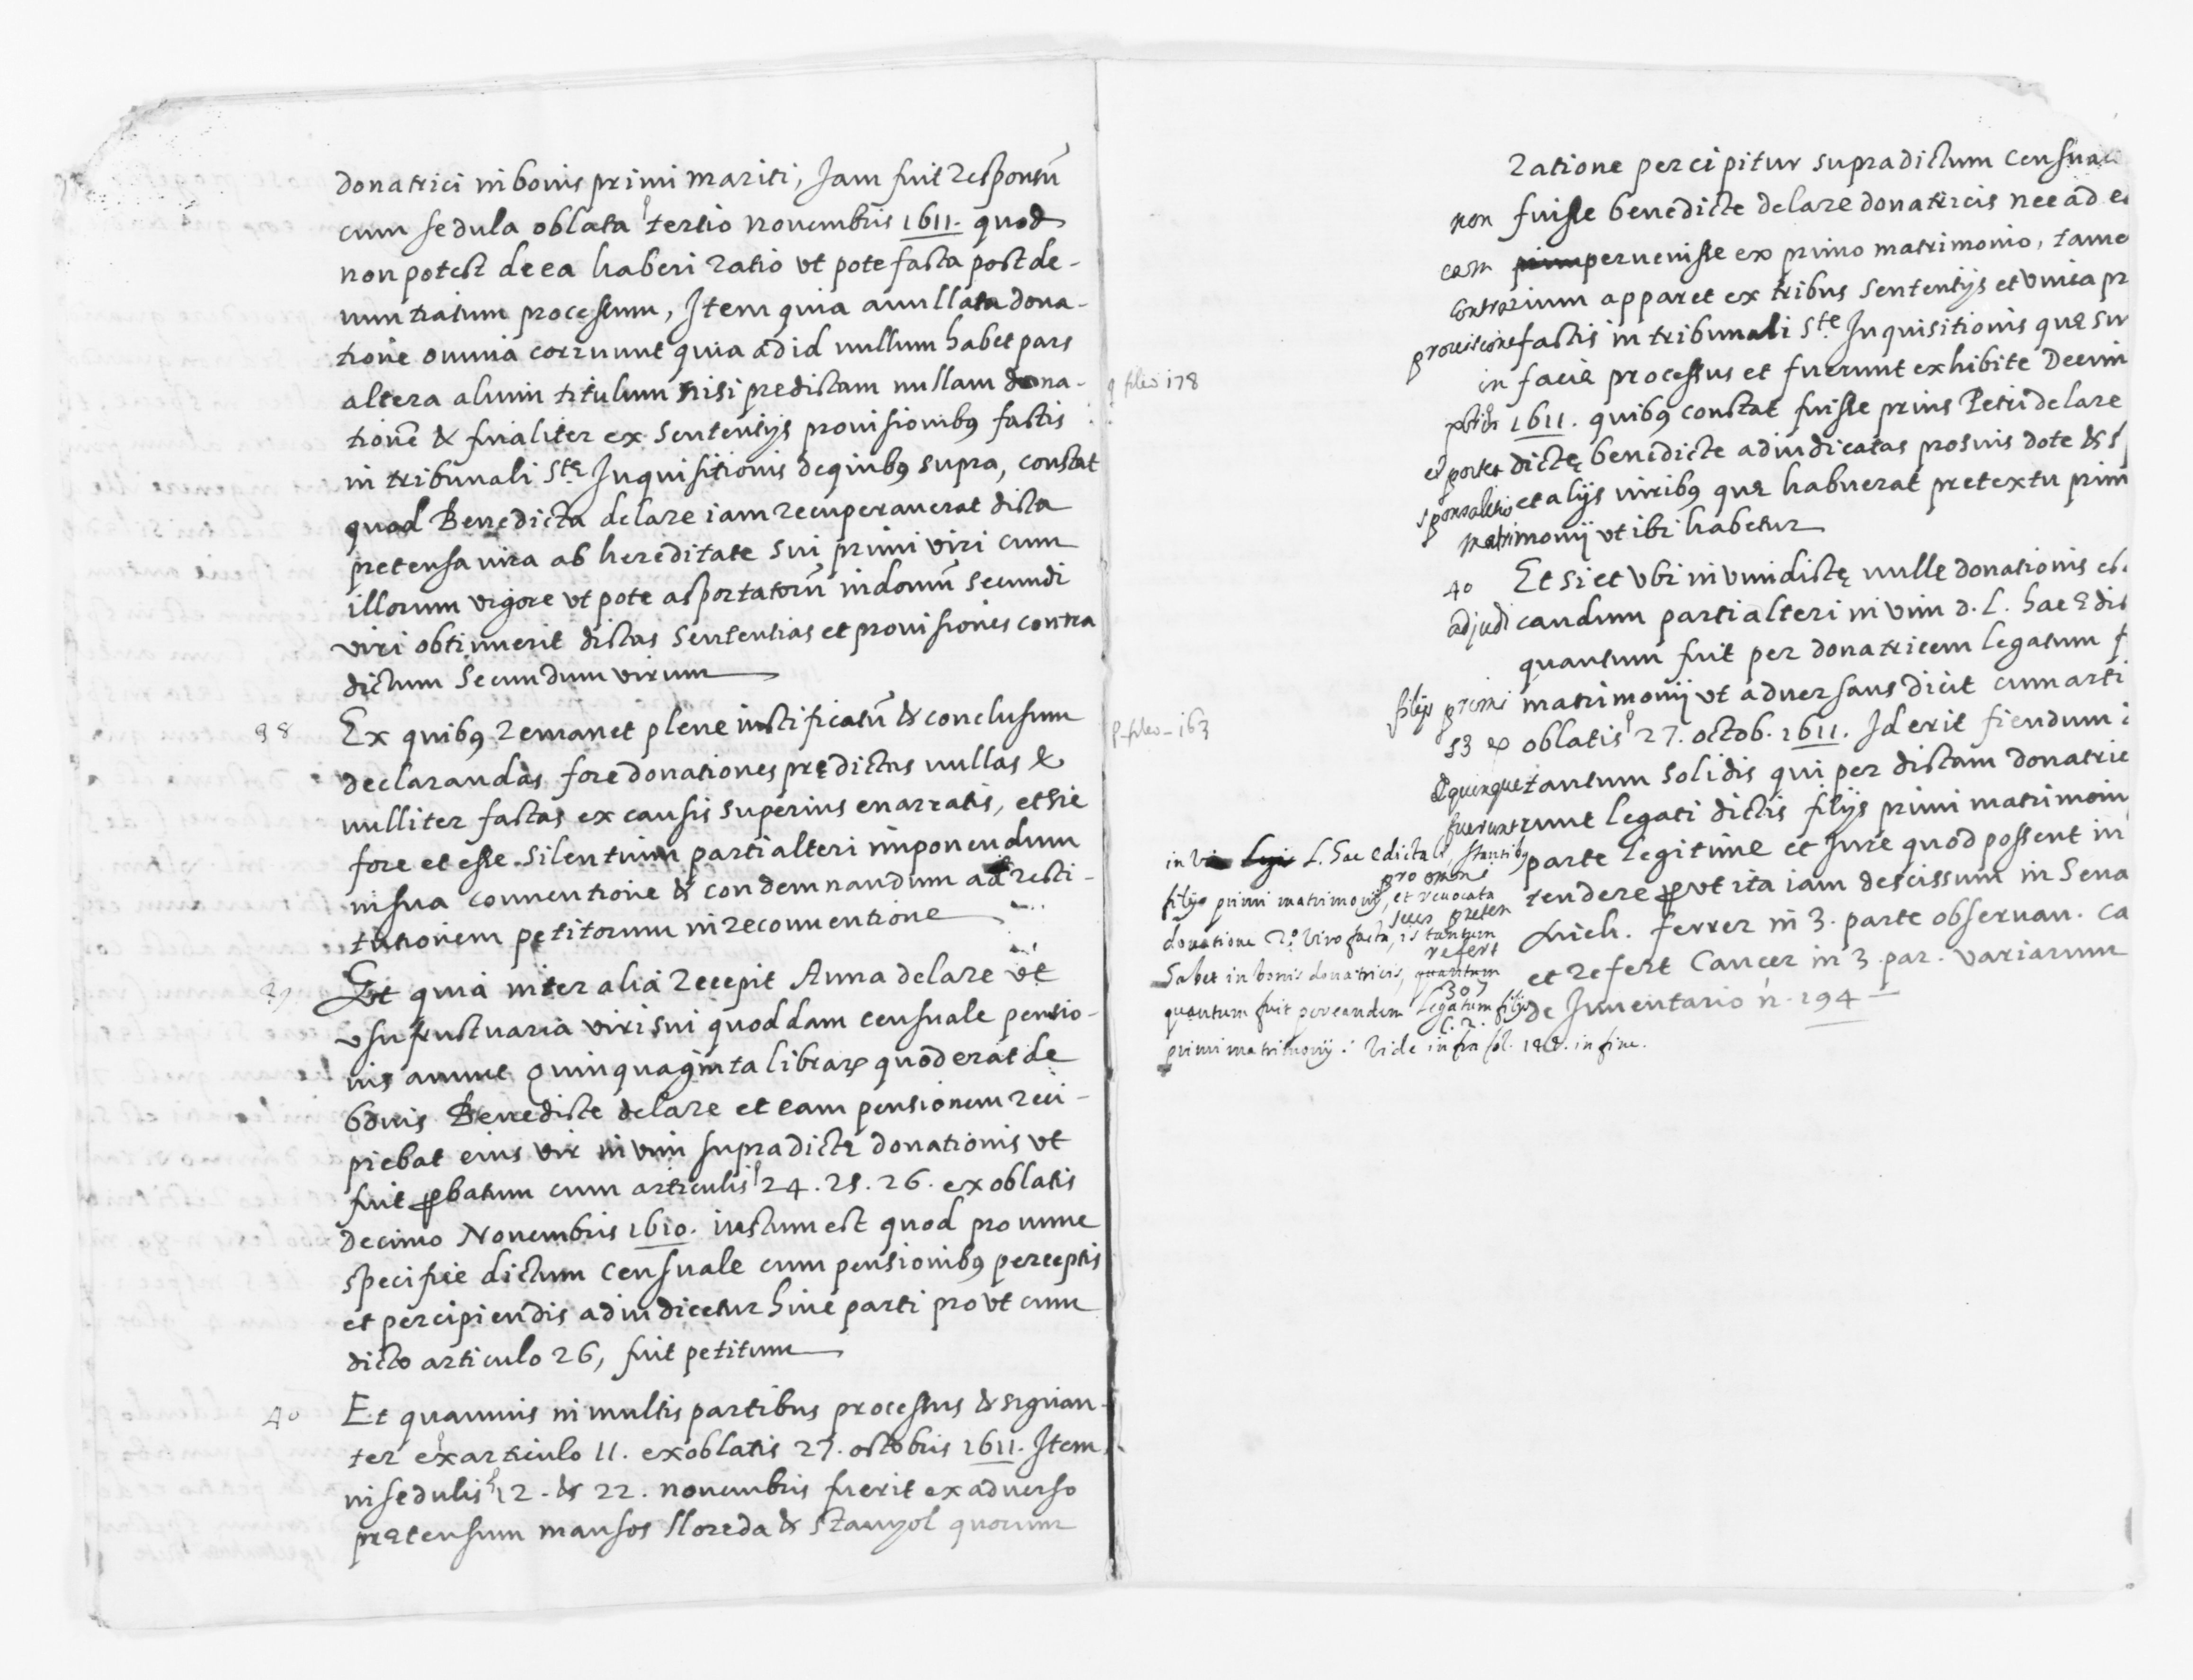 donatrici in bonis primi mariti, Jam fuit responsũ
cum sedula oblata tertio novembris 1611. quod
non potest de ea haberi ratio vt pote facta post de-
nuntiatum processum, Item quia anullata dona-
tione omnia corruunt quia ad id nullum habet pars
altera alium titulum nisi predictam nullam dona-
tionẽ & finaliter ex sententijs provisionibꝰ factis
in tribunali Ste Inquisitionis de quibꝰ supra, constat
quod Benedicta delare iam recuperauerat dicta
pretensa iura ab hereditate sui primi viri cum
illorum vigore vt pote asportatorũ in domũ secundi
viri obtinuerit dictas sententias et provisiones contra
dictum secundum virum
38
Ex quibꝰ remanet plene iustificatũ & conclusum
declarandas fore donationes prędictas nullas &
nulliter factas ex causis superius enarratis, et sic
fore et esse silentium parti alteri imponendum
in sua conventione & condemnandum ad resti-
tutionem pętitorum in reconventione
39
Et quia inter alia recepit Anna delare vt
vsufructuaria viri sui quoddam censuale pensio-
nis annuę quinquaginta librarꝝ quod erat de
bonis Benedicte delare et eam pensionem reci-
piebat eius vir in vim supradictę donationis vt
fuit ꝓbatum cum articulis 24. 25. 26. ex oblatis
decimo Novembris 1610. iustum est quod pro nunc
specifice dictum censuale cum pensionibꝰ perceptis
et percipiendis adiudicetur huic parti pro vt cum
dicto articulo 26, fuit petitum
40
Et quamuis in multis partibus processus & signan-
ter ex articulo 11. ex oblatis 27. octobris 1611. Item
in sedulis 12. & 22. novembris fuerit ex adverso
prætensum mansos lloreda & stanyol quorum
q folio 178
p folio 163
ratione percipitur supradictum censua
non fuisse benedicte delare donatricis nec ad e
eam peruenisse ex primo matrimonio, tame
contrarium apparet ex tribus sententijs et vnica pr
provisione factis in tribunali Ste Inquisitionis quæ su
in facie processus et fuerunt exhibite Decim
1611. quibꝰ constat fuisse prius Petri delare
et postea dictę benedicte adiudicatas pro suis dote & s
sponsalitio et alijs iuribꝰ quæ habuerat pretextu prim
matrimonij vt ibi habetur
40 Et si et vbi in vim dictę nulle donationis es
adjudicandum parti alteri in vim d. L. hac edic
quantum fuit per donatricem legatum f
filijs primi matrimonij vt adversans dicit cum arti
53 ex oblatis 27. octob. 1611. Id erit fiendum i
quinque tantum solidis qui per dictam donatric
fuerunt legati dictis filijs primi matrimoni
pro omni parte legitime et Jure quod possent in
tendere ꝓvt ita iam descissum in Sena
refert Mich. ferrer in 3. parte observan. ca
307 et refert Cancer in 3. par. variarum
c. 2. de Inventario n. 194
in vi L. hac edictali, stantibꝰ
filijs primi matrimonij, et revocata
donatione 2o. viro facta, is tantum
habet in bonis donatricis, quantum
quantum fuit per eandem legatum filijs
primi matrimonij: Vide infra fol. 188. in fine.